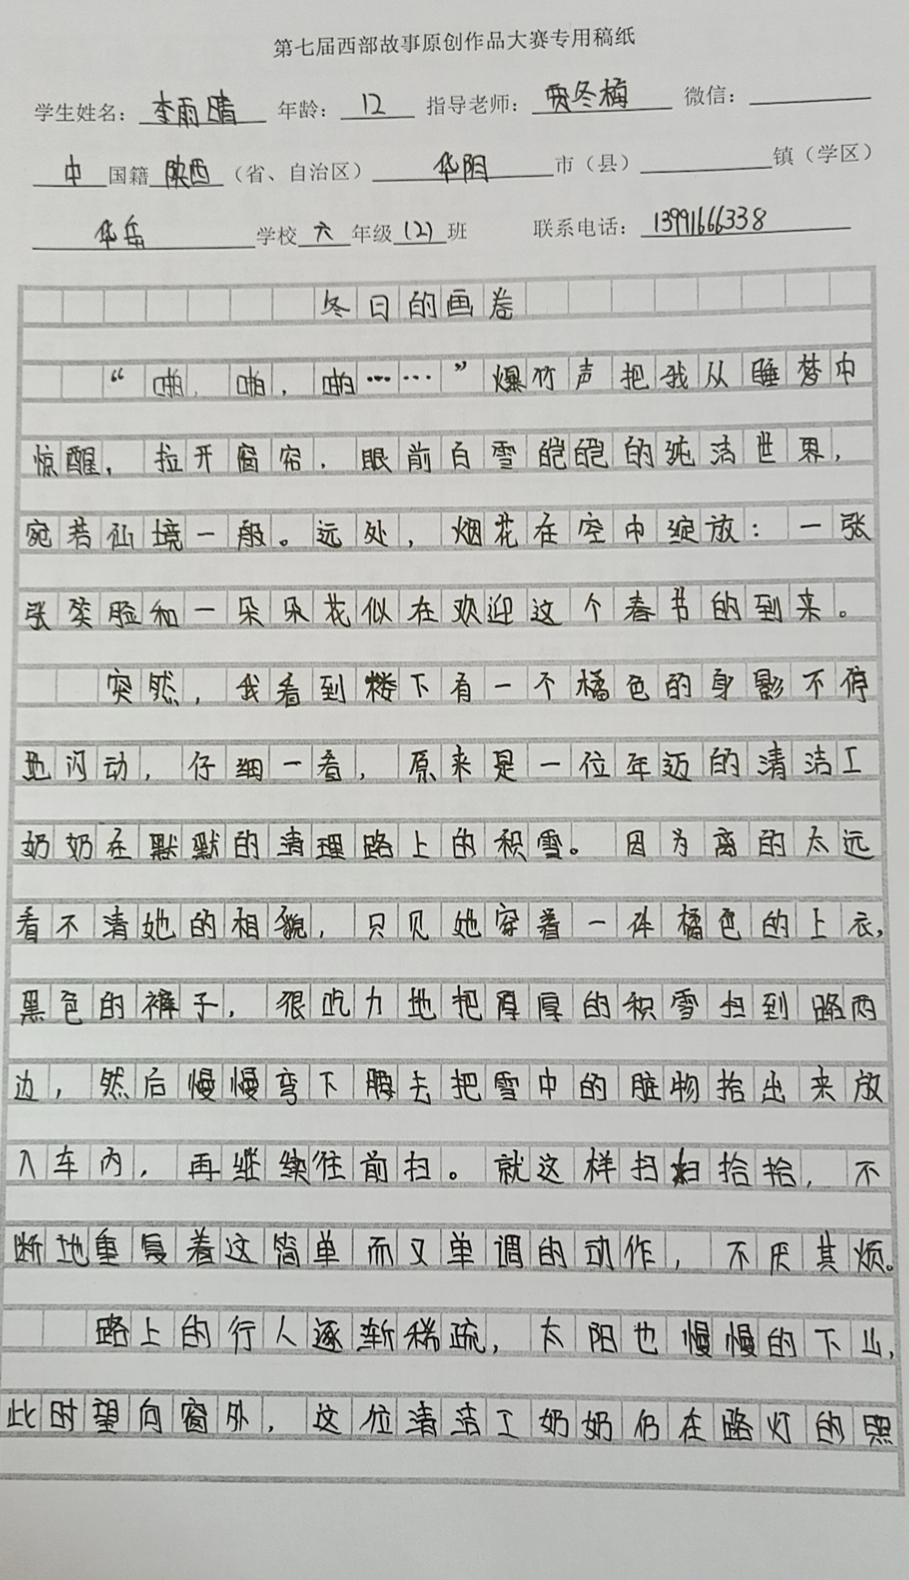 第七届西部故事原创作品大赛专用稿纸
学生姓名：李雨晴 年龄：12 指导老师：贾冬梅 微信：
中国籍陕西（省、自治区）华阴市（县）镇（学区）
华岳学校六年级(2)班 联系电话：13991666338
冬日的画卷
“啪，啪，啪……”爆竹声把我从睡梦中
惊醒，拉开窗帘，眼前白雪皑皑的纯洁世界，
宛若仙境一般。远处，烟花在空中绽放：一张
张笑脸和一朵朵花似在欢迎这个春节的到来。
突然，我看到楼下有一个橘色的身影不停
地闪动，仔细一看，原来是一位年迈的清洁工
奶奶在默默的清理路上的积雪。因为离的太远
看不清她的相貌，只见她穿着一件橘色的上衣，
黑色的裤子，很吃力地把厚厚的积雪扫到路两
边，然后慢慢弯下腰去把雪中的脏物拾出来放
入车内，再继续往前扫。就这样扫扫拾拾，不
断地重复着这简单而又单调的动作，不厌其烦。
路上的行人逐渐稀疏，太阳也慢慢的下山，
此时望向窗外，这位清洁工奶奶仍在路灯的照